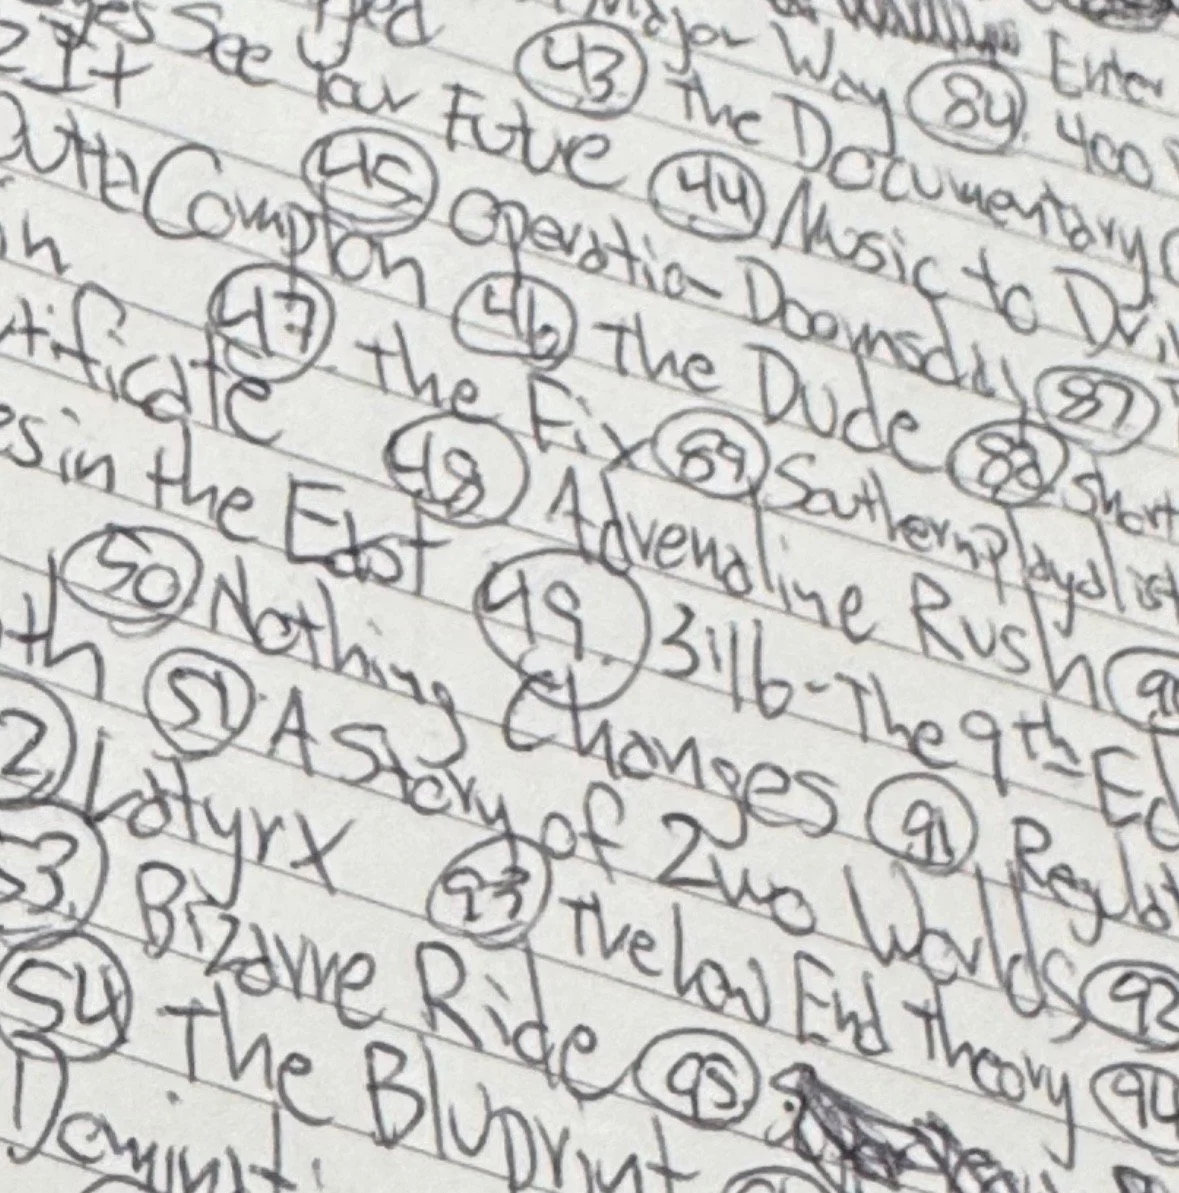 Major Way 84 Enter
See Your Future 43 The Documentary
It 44 Music to Dri
Compton 45 Operation Doomsday 87
46 The Dude 88 Short
tificate 47 The Fix 89 Southernplayalist
es in the East 48 Adrenaline Rush
th 50 Nothing Changes 49 3116-The 9th Ed
51 A Story of 2wo Worlds 91 Regulat
Latyrx 93 The Low End Theory 92
53 Bizarre Ride 95 94
54 The Bluprint